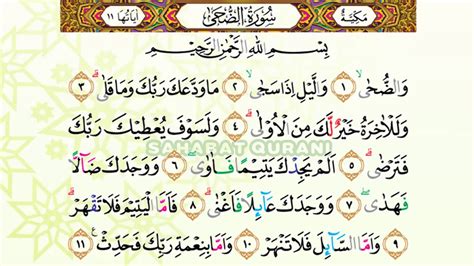 مَكِّيَّةٌ سُورَةُ الضُّحٰى اٰيَاتُهَا ١١
بِسْمِ اللهِ الرَّحْمٰنِ الرَّحِيْمِ
وَالضُّحٰىۙ ١ وَالَّيْلِ اِذَا سَجٰىۙ ٢ مَا وَدَّعَكَ رَبُّكَ وَمَا قَلٰىۗ ٣
وَلَلْاٰخِرَةُ خَيْرٌ لَّكَ مِنَ الْاُوْلٰىۗ ٤ وَلَسَوْفَ يُعْطِيْكَ رَبُّكَ
SAHARAT QURANI
فَتَرْضٰىۗ ٥ اَلَمْ يَجِدْكَ يَتِيْمًا فَاٰوٰىۖ ٦ وَوَجَدَكَ ضَاۤلًّا
فَهَدٰىۖ ٧ وَوَجَدَكَ عَاۤىِٕلًا فَاَغْنٰىۗ ٨ فَاَمَّا الْيَتِيْمَ فَلَا تَقْهَرْۗ
٩ وَاَمَّا السَّاۤىِٕلَ فَلَا تَنْهَرْۗ ١٠ وَاَمَّا بِنِعْمَةِ رَبِّكَ فَحَدِّثْ ࣖ ١١